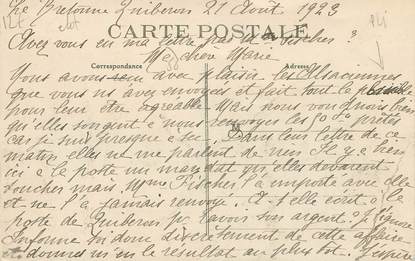 Bretonne Quiberon 21 Août 1923
CARTE POSTALE
Avez vous eu ma lettre
Correspondance
Ma chère Marie
Adresse
Nous avons eu avec plaisir les Alsaciennes
que vous ns avez envoyées et fait tout le possible
pour leur être agréable. Mais nous voudrions bien
qu'elles songent à nous renvoyer les 50 prêtés
car je suis presque à sec. Dans leur lettre de ce
matin elles ne me parlent de rien. Il y a bien
ici à la poste un mandat qu'elles devaient
toucher mais Mme Fischer l'a emporté avec elle
et ne l'a jamais renvoyé. A-t-elle écrit à la
poste de Quiberon pr ravoir son argent? J'ignore
Informe toi donc discrètement de cette affaire
et donnes m'en le resultat au plus tot. J'espère